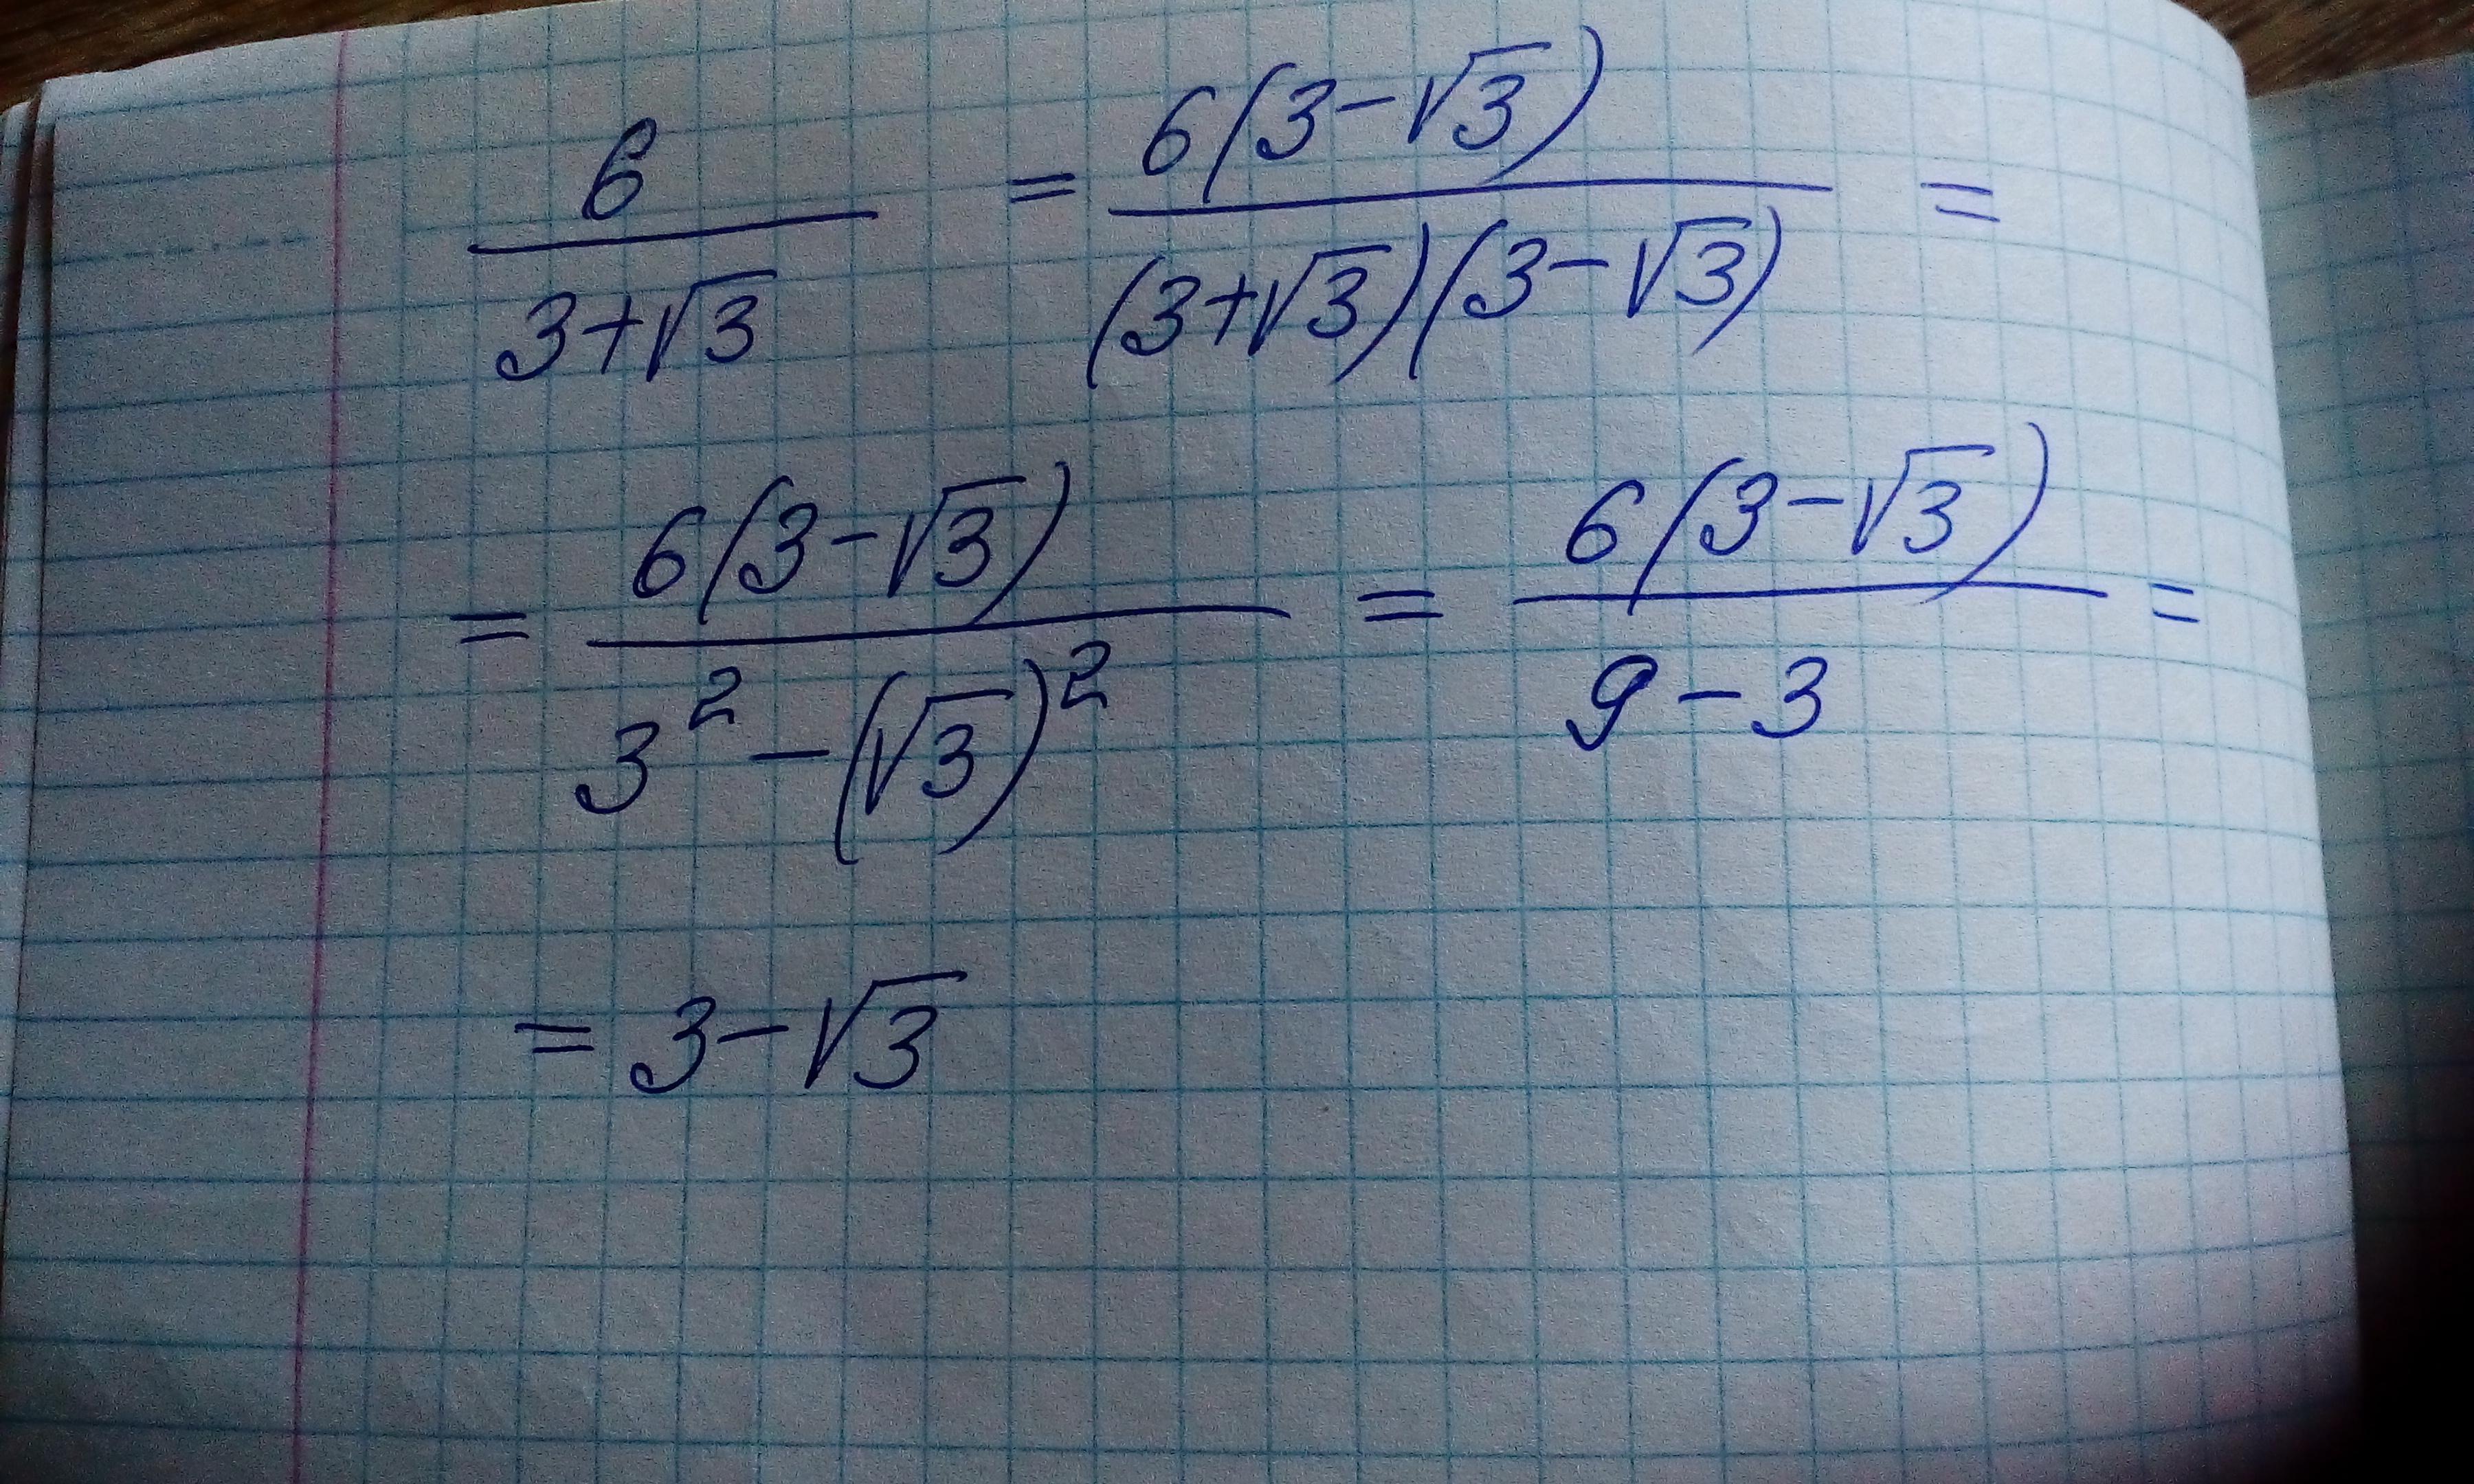 6/(3+√3) = 6(3-√3)/((3+√3)(3-√3)) =
= 6(3-√3)/(3²-(√3)²) = 6(3-√3)/(9-3) =
= 3-√3